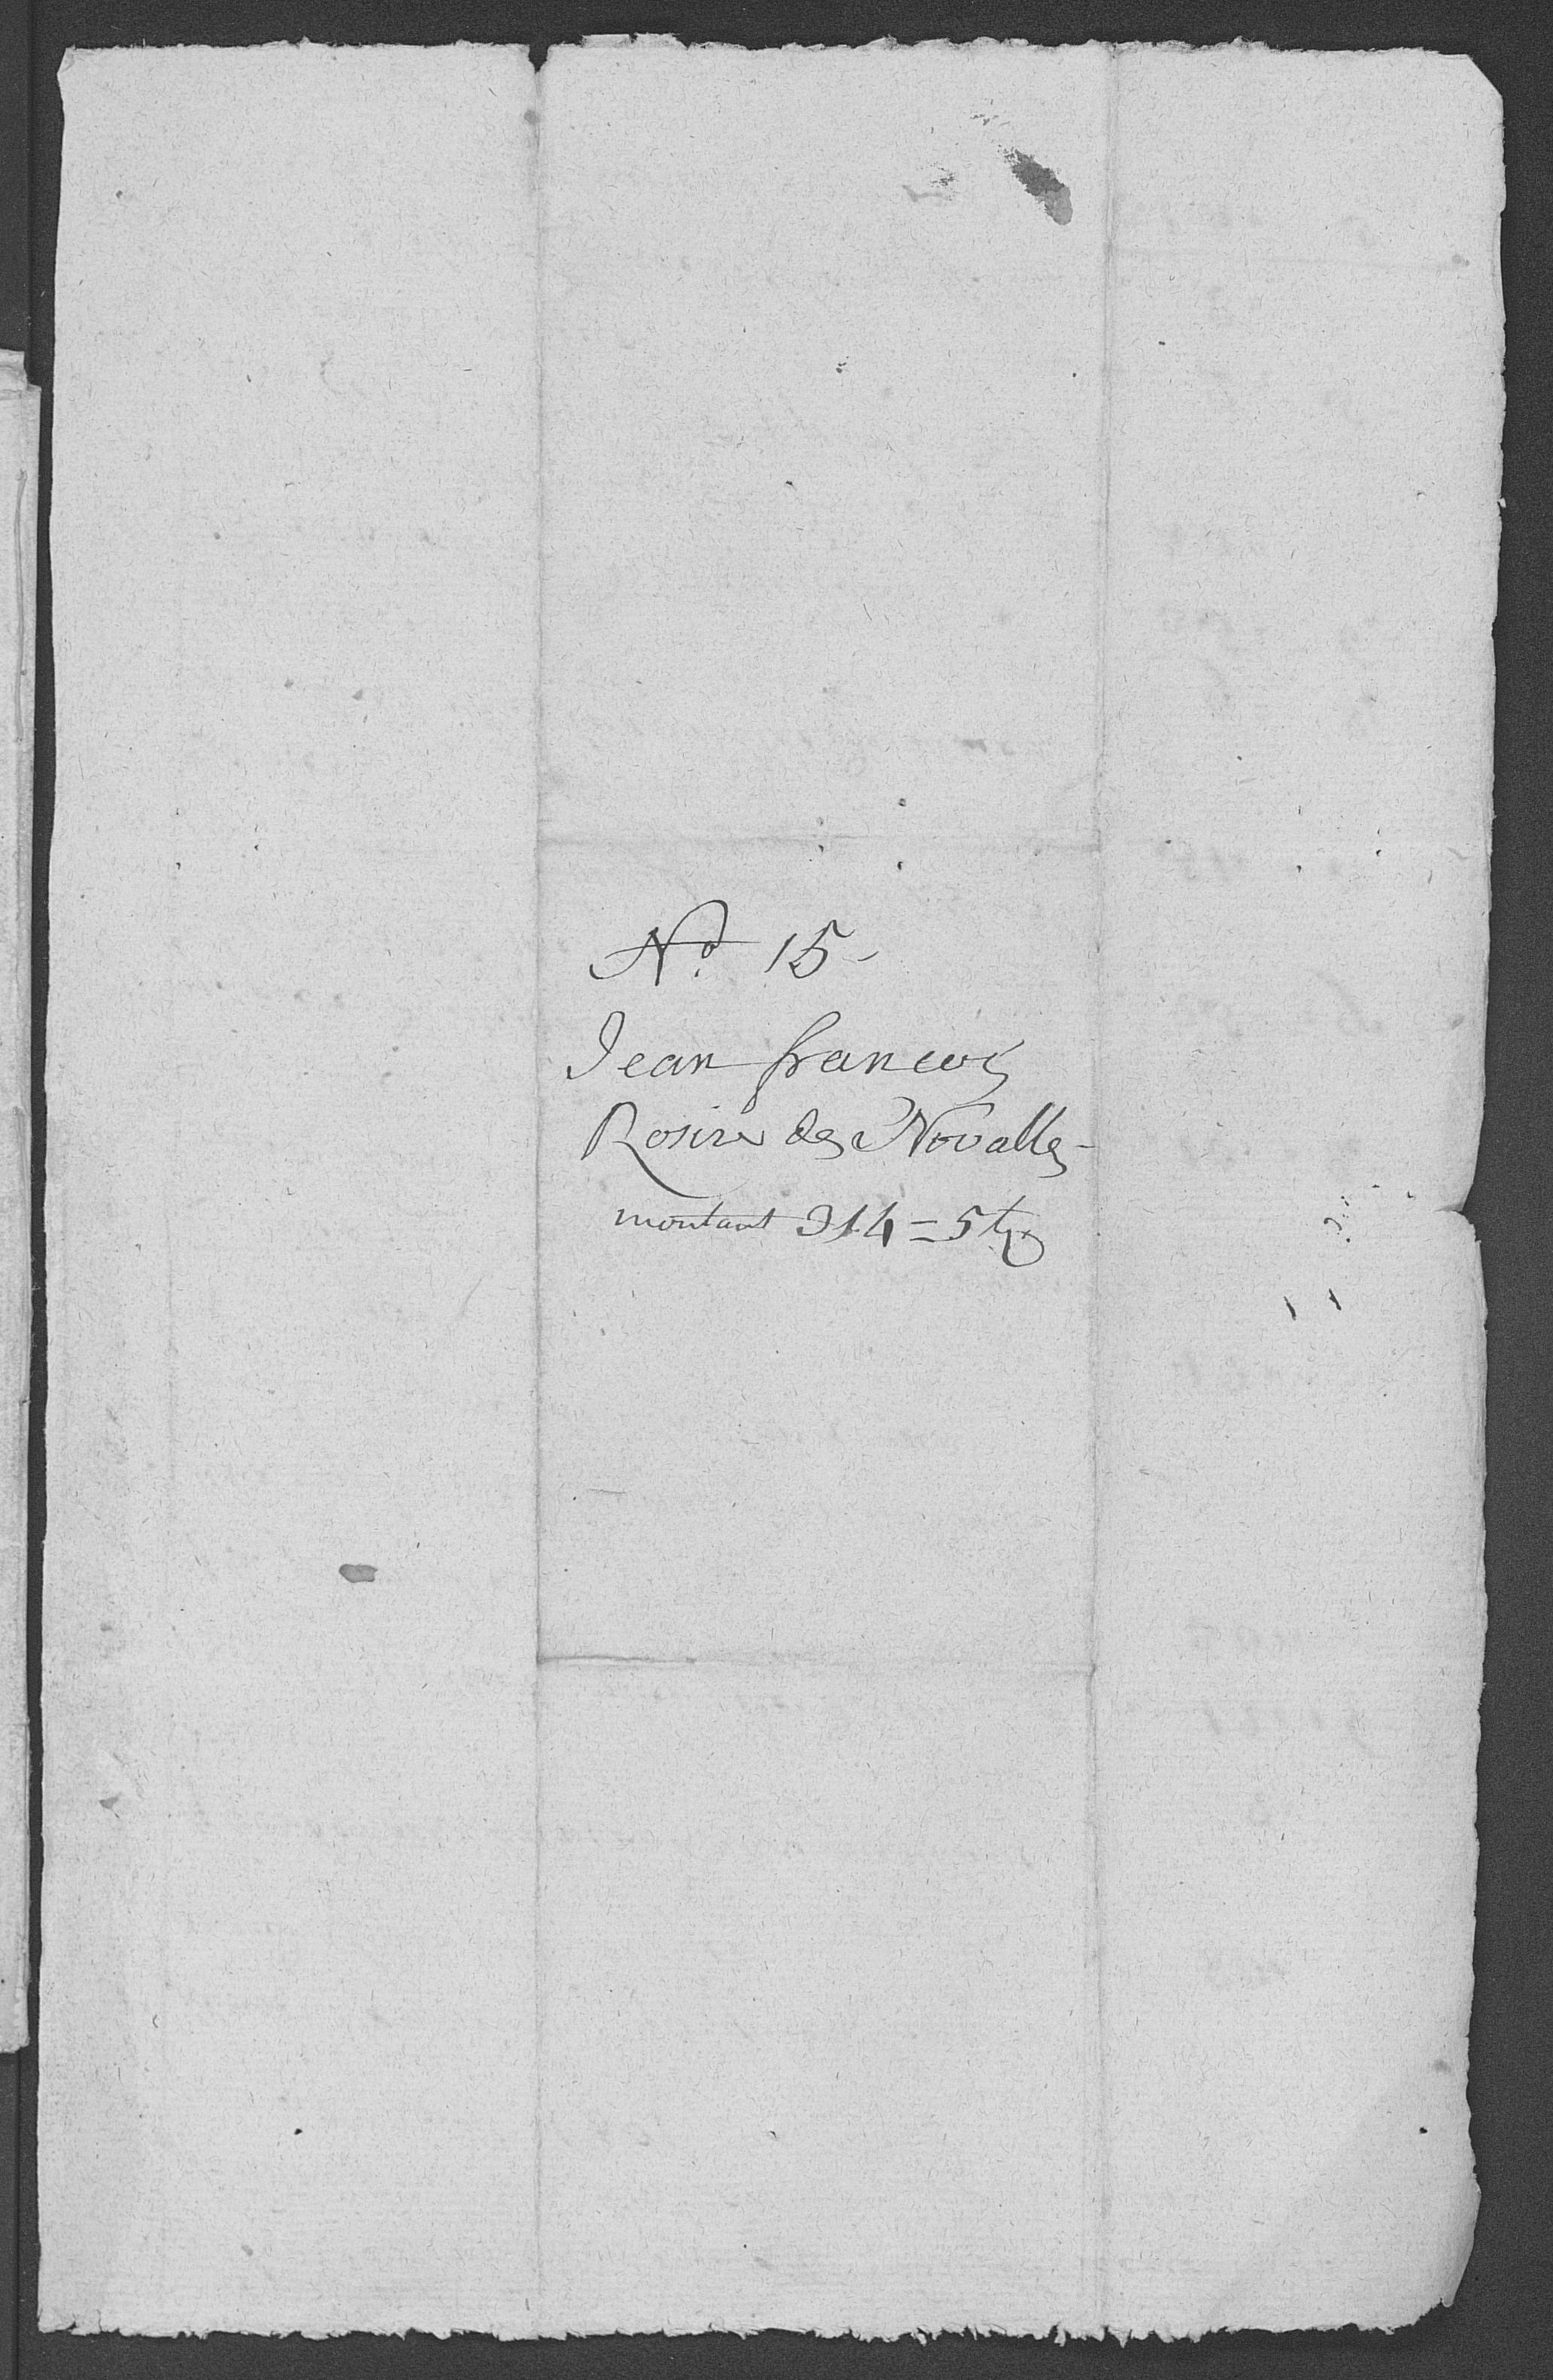 No. 15-
Jean francois
Rosire des Novalles-
montant 314=5